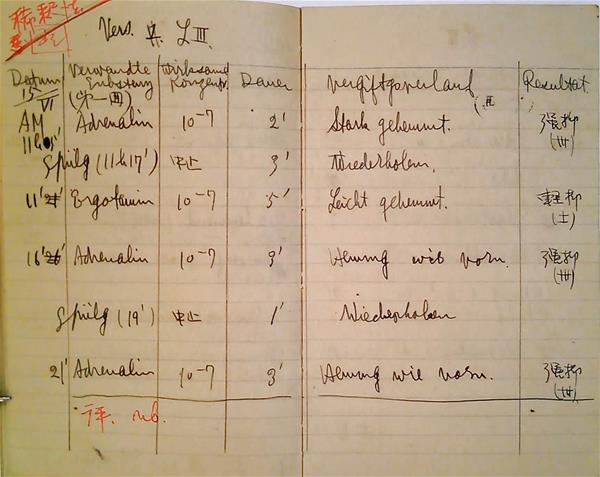 Vers. LIII.
Datum Verwandte Substanz (第一回) Wirksame Konzentr. Dauer Vergiftgsverlauf Resultat.
15/VI
AM 11h Adrenalin 10-7 2' Stark gehemmt. 强抑 (卅)
Spülg (11h17') 中止 3' Wiederholen.
11' Ergotamin 10-7 5' Leicht gehemmt. 軽抑 (±)
16' Adrenalin 10-7 3' Hemmung wie vorn. 强抑 (卅)
Spülg (19') 中止 1' Wiederholen
21' Adrenalin 10-7 3' Hemmung wie vorn. 强抑 (卅)